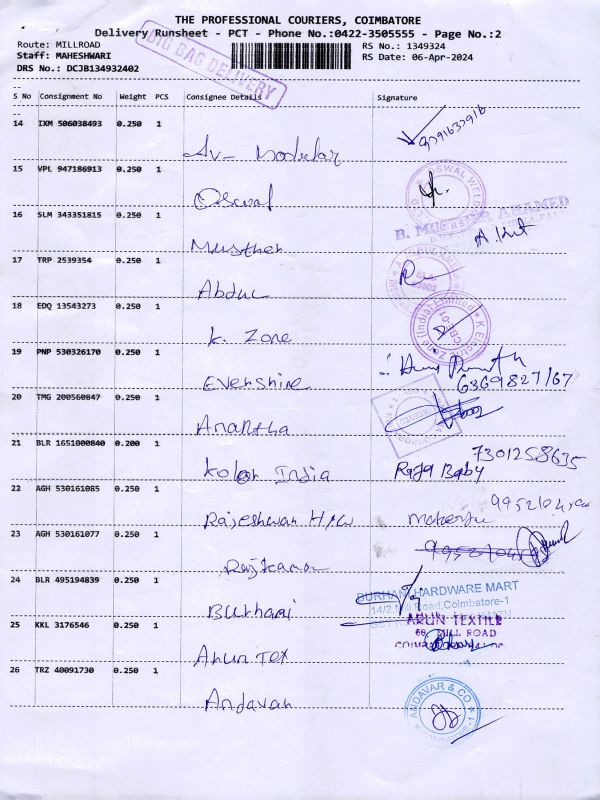 THE PROFESSIONAL COURIERS, COIMBATORE
Delivery Runsheet - PCT - Phone No.:0422-3505555 - Page No.:2
Route: MILLROAD
RS No.: 1349324
Staff: MAHESHWARI
RS Date: 06-Apr-2024
DRS No.: DCJB134932402
BIG BAG DELIVERY
S No Consignment No Weight PCS Consignee Details Signature
14 IXM 506038493 0.250 1
15 VPL 947186913 0.250 1
Oswal
16 SLM 343351815 0.250 1
17 TRP 2539354 0.250 1
Abdul
18 EDQ 13543273 0.250 1
K. Zone
19 PNP 530326170 0.250 1
Evenshine
20 TMG 200560847 0.250 1
Anantha
21 BLR 1651000840 0.200 1
7301258635
Kolor India Raja Baby
22 AGH 530161085 0.250 1
Rajeshwari H/W
23 AGH 530161077 0.250 1
24 BLR 495194839 0.250 1
BURHANI HARDWARE MART
14/2, Mill Road, Coimbatore-1
Burhani
25 KKL 3176546 0.250 1
ARUN TEXTILE
66 MILL ROAD
Arun Tex
26 TRZ 40091730 0.250 1
ANDAVAR & CO
Andavar